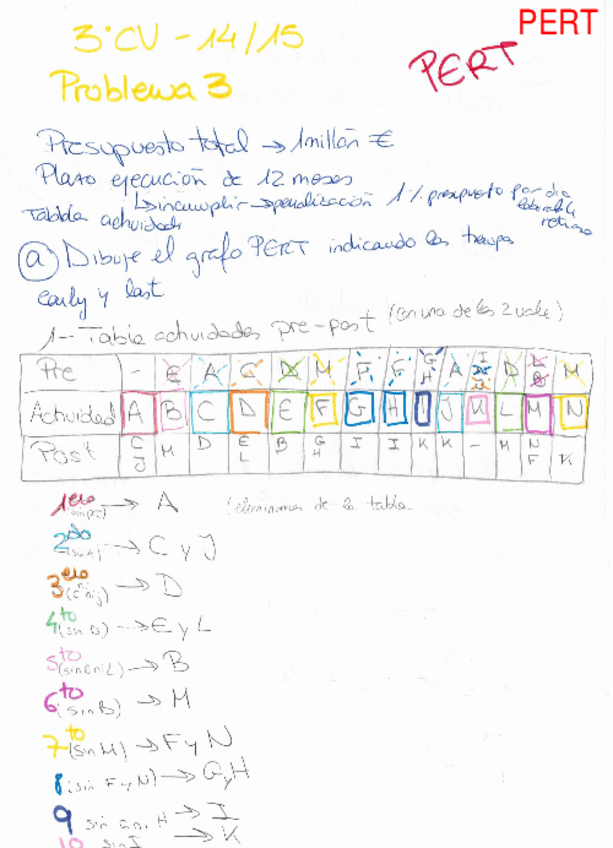 PERT
3ºCV - 14/15
PERT
Problema 3
Presupuesto total → 1 millón €
Plazo ejecución de 12 meses
↳ incumplir → penalización 1% presupuesto por día
Tabla actividades
retraso
ⓐ Dibuje el grafo PERT indicando los tiempos
early y last
1- Tabla actividades pre-post (con una de las 2 vale)
Pre - E A C D M F F G H A I D L B M
Actividad A B C D E F G H I J K L M N
Post C J M D E L B G H I I K K - M N F K
1ero → A (eliminamos de la tabla
2do → C y J
3ero → D
4to (sin D) → E y L
5to → B
6to (sin B) → M
7to (sin M) → F y N
8 (sin F y N) → G y H
9 sin G ni H → I
10 sin I → K